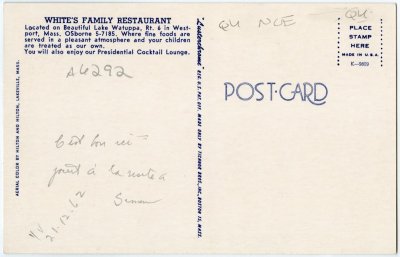 WHITE'S FAMILY RESTAURANT
Located on Beautiful Lake Watuppa, Rt. 6 in West-
port, Mass. OSborne 5-7185. Where fine foods are
served in a pleasant atmosphere and your children
are treated as our own.
You will also enjoy our Presidential Cocktail Lounge.
A6292
C'est bon
à la
Simon
21.12.62
AERIAL COLOR BY HILTON AND HILTON, LAKEVILLE, MASS.
"Lusterchrome" REG. U.S. PAT. OFF. MADE ONLY BY TICHNOR BROS., INC., BOSTON 15, MASS.
QU NCE
QU
PLACE
STAMP
HERE
MADE IN U.S.A.
K-9809
POST-CARD